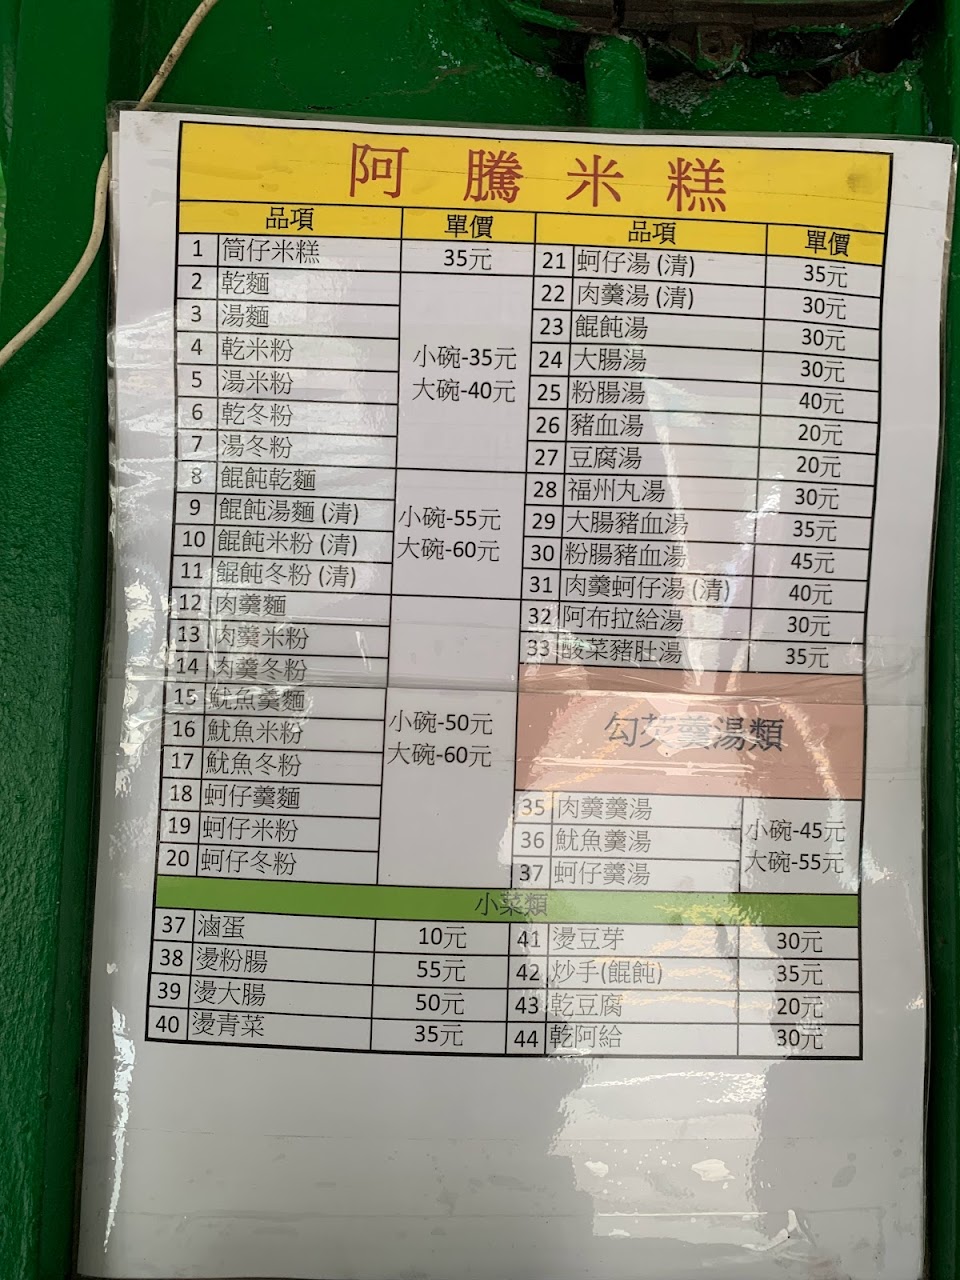 阿騰米糕
品項 單價 品項 單價
1 筒仔米糕 35元 21 蚵仔湯 (清) 35元
2 乾麵 22 肉羹湯 (清) 30元
3 湯麵 23 餛飩湯 30元
4 乾米粉 小碗-35元 24 大腸湯 30元
5 湯米粉 大碗-40元 25 粉腸湯 40元
6 乾冬粉 26 豬血湯 20元
7 湯冬粉 27 豆腐湯 20元
8 餛飩乾麵 28 福州丸湯 30元
9 餛飩湯麵 (清) 小碗-55元 29 大腸豬血湯 35元
10 餛飩米粉 (清) 大碗-60元 30 粉腸豬血湯 45元
11 餛飩冬粉 (清) 31 肉羹蚵仔湯 (清) 40元
12 肉羹麵 32 阿布拉給湯 30元
13 肉羹米粉 33 酸菜豬肚湯 35元
14 肉羹冬粉
15 魷魚羹麵 小碗-50元 勾芡羹湯類
16 魷魚米粉 大碗-60元
17 魷魚冬粉
18 蚵仔羹麵 35 肉羹羹湯 小碗-45元
19 蚵仔米粉 36 魷魚羹湯 大碗-55元
20 蚵仔冬粉 37 蚵仔羹湯
小菜類
37 滷蛋 10元 41 燙豆芽 30元
38 燙粉腸 55元 42 炒手(餛飩) 35元
39 燙大腸 50元 43 乾豆腐 20元
40 燙青菜 35元 44 乾阿給 30元